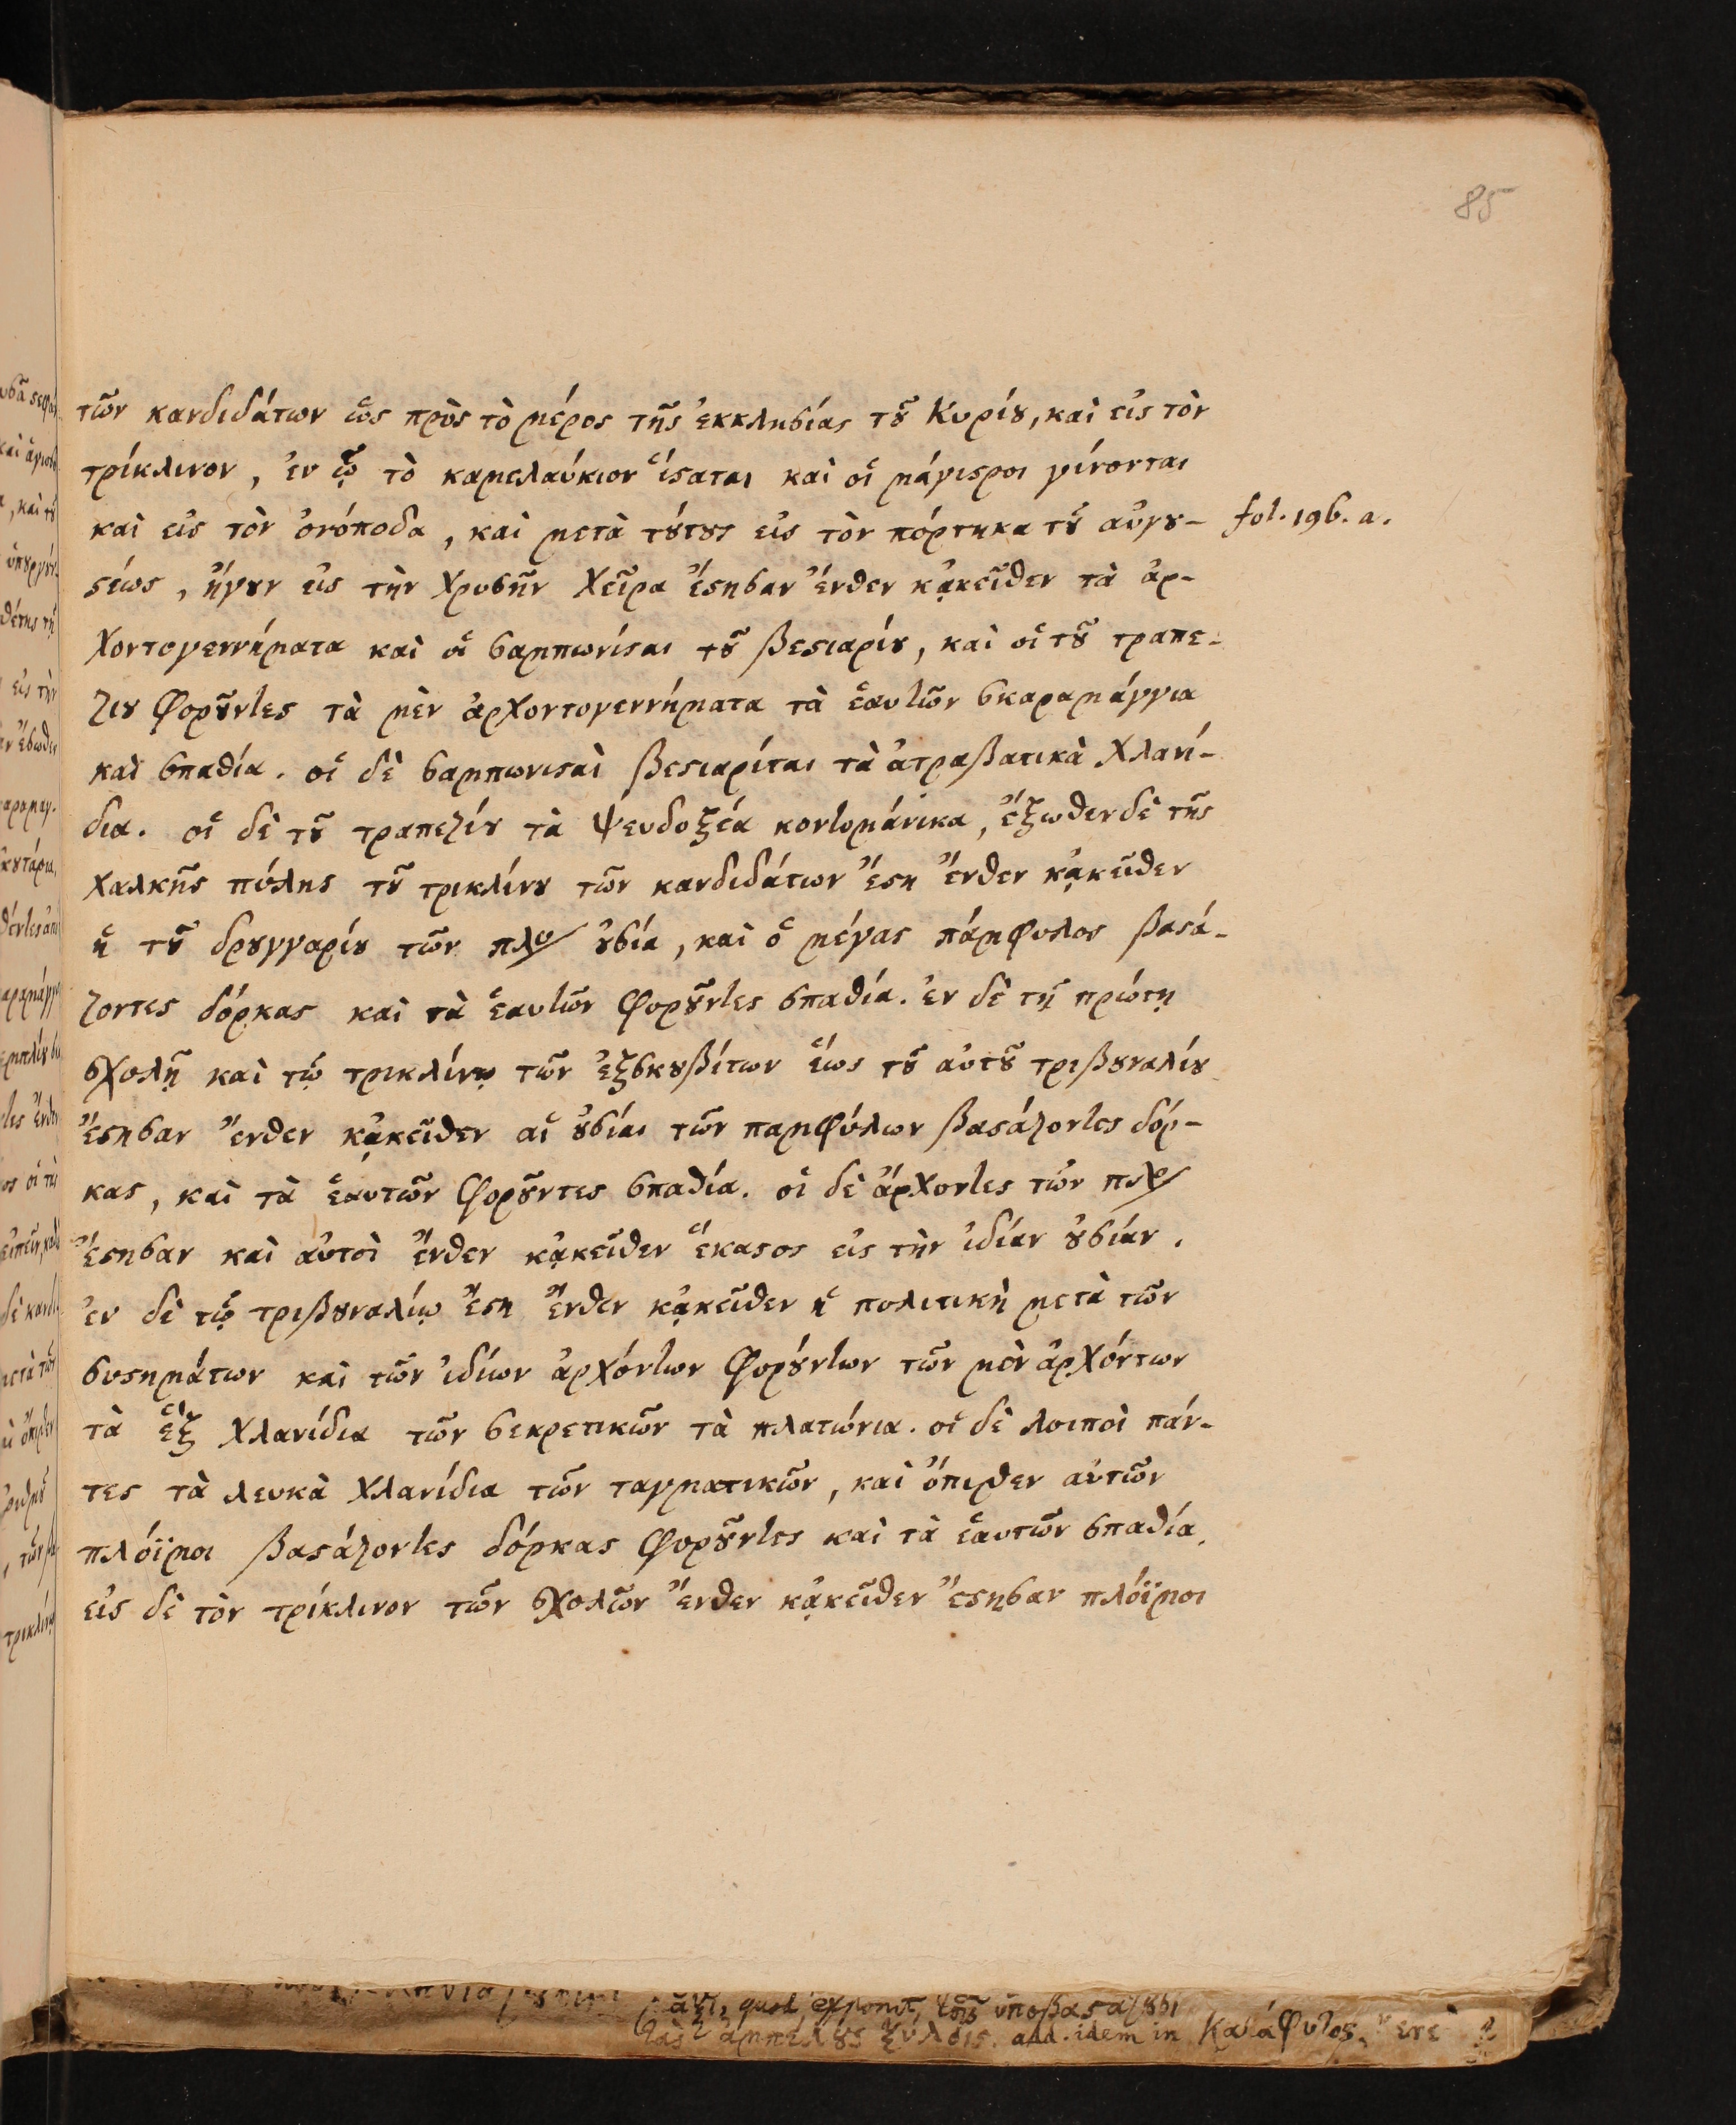 85
τῶν κανδιδάτων ὡς πρὸς τὸ μέρος τῆς ἐκκλησίας τȣ͂ Κυρίȣ, καὶ εἰς τὸν
τρίκλινον, ἐν ᾧ τὸ καμελαύκιον ἵϛαται καὶ οἱ μάγιϛροι γίνονται
καὶ εἰς τὸν ὀνόποδα, καὶ μετὰ τȣ́τȣς εἰς τὸν πόρτηκα τȣ͂ αὐγȣ- fol. 196. a.
ϛέως, ἤγȣν εἰς τὴν Χρυσῆν Χεῖρα ἔϛησαν ἔνθεν κᾀκεῖθεν τὰ ἀρ-
χοντογεννήματα καὶ οἱ σαμπωνίϛαι τȣ͂ βεϛιαρίȣ, καὶ οἱ τȣ͂ τραπε-
ζίȣ φορȣ͂ντες τὰ μὲν ἀρχοντογεννήματα τὰ ἑαυτῶν σκαραμάγγια
καὶ σπαθία. οἱ δὲ σαμπωνιϛαὶ βεϛιαρίται τὰ ἀτραβατικὰ χλανί-
δια. οἱ δὲ τȣ͂ τραπεζίȣ τὰ ψευδοξέα κοντομάνικα, ἔξωθεν δὲ τῆς
χαλκῆς πύλης τȣ͂ τρικλίνȣ τῶν κανδιδάτων ἔϛη ἔνθεν κᾀκεῖθεν
ἡ τȣ͂ δρȣγγαρίȣ τῶν πλο/ ȣ̓σία, καὶ ὁ μέγας πάμφυλος βαϛά-
ζοντες δόρκας καὶ τὰ ἑαυτῶν φορȣ͂ντες σπαθία. ἐν δὲ τῇ πρώτῃ
σχολῇ καὶ τῷ τρικλίνῳ τῶν ἐξσκȣβίτων ἕως τȣ͂ αὐτȣ͂ τριβȣναλίȣ
ἔϛησαν ἔνθεν κᾀκεῖθεν αἱ ȣ̓σίαι τῶν παμφύλων βαϛάζοντες δόρ-
κας, καὶ τὰ ἑαυτῶν φορȣ͂ντες σπαθία. οἱ δὲ ἄρχοντες τῶν πλο/
ἔϛησαν καὶ αὐτοὶ ἔνθεν κᾀκεῖθεν ἕκαϛος εἰς τὴν ἰδίαν ȣ̓σίαν.
ἐν δὲ τῷ τριβȣναλίῳ ἔϛη ἔνθεν κᾀκεῖθεν ἡ πολιτικὴ μετὰ τῶν
συϛημάτων καὶ τῶν ἰδίων ἀρχόντων φορȣ́ντων τῶν μὲν ἀρχόντων
τὰ ἐξ χλανίδια τῶν σεκρετικῶν τὰ πλατώνια. οἱ δὲ λοιποὶ πάν-
τες τὰ λευκὰ χλανίδια τῶν ταγματικῶν, καὶ ὄπιθεν αὐτῶν
πλόϊμοι βαϛάζοντες δόρκας φορȣ͂ντες καὶ τὰ ἑαυτῶν σπαθία.
εἰς δὲ τὸν τρίκλινον τῶν σχολῶν ἔνθεν κᾀκεῖθεν ἔϛησαν πλόϊμοι
quod exponit, τοῖς ὑποβαϛάζȣσι
τὰς ἀμπέλȣς ξύλοις. add. idem in Κατάφυτος